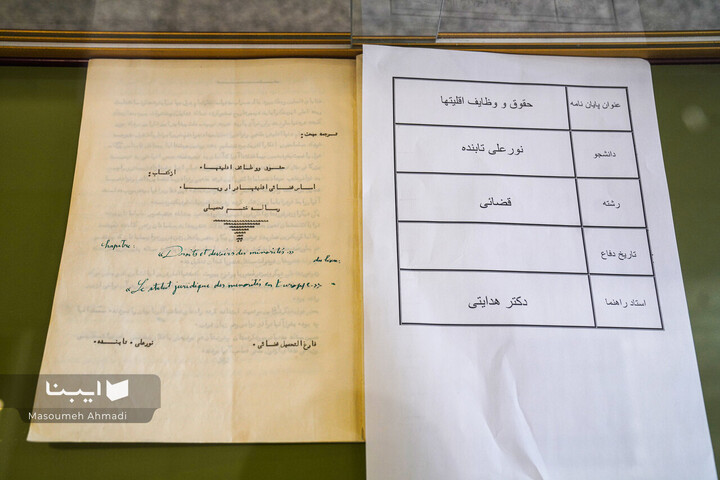 ترجمه مبحث :
حقوق و وظائف اقلیتها ،
از کتاب :
اساس قضائی اقلیتها در اروپا ،
رساله ختم تحصیلی
chapitre:
« Droits et devoirs des minorités. »
du livre:
« Le statut juridique des minorités en Europe. » -
فارغ التحصیل قضائی ،
نورعلی ، تابنده ،
عنوان پایان نامه
حقوق و وظایف اقلیتها
دانشجو
نورعلی تابنده
رشته
قضائی
تاریخ دفاع
استاد راهنما
دکتر هدایتی
ایبنا
Masoumeh Ahmadi